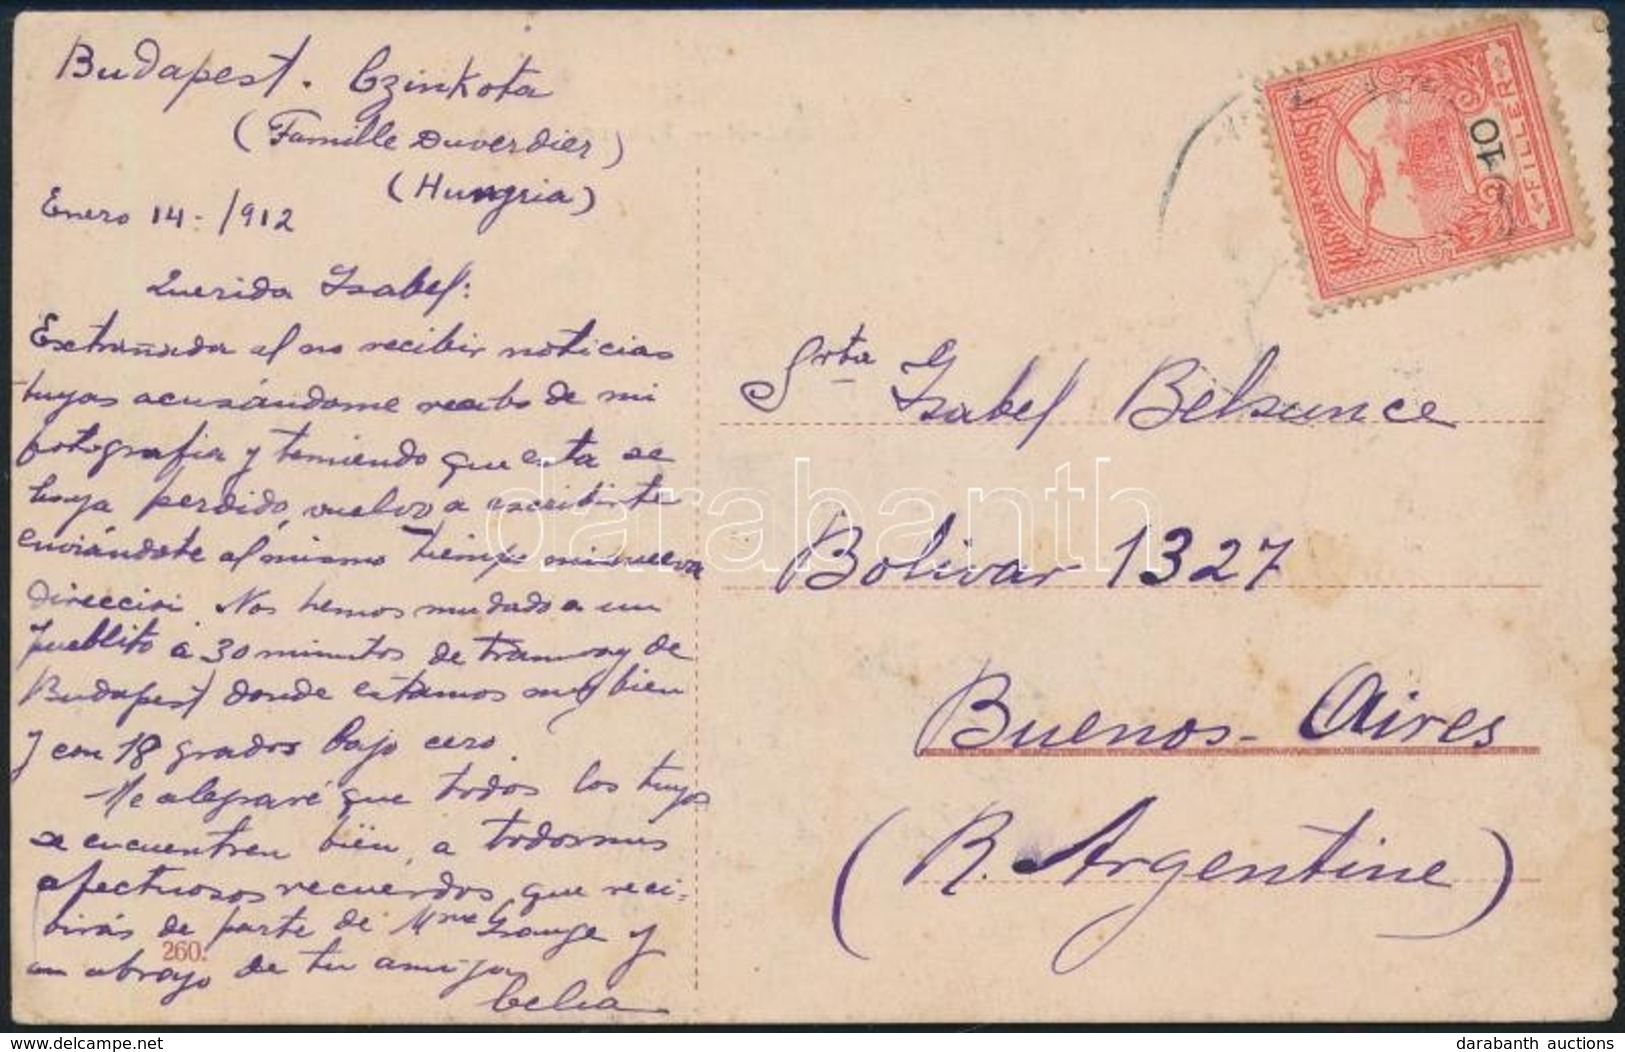 Budapest. Czinkota
(Famille Duverdier)
(Hungria)
Enero 14-/912
Querida Isabel:
Extrañada al no recibir noticias
tuyas acusándome recibo de mi
fotografia y temiendo que esta se
haya perdido, vuelvo a escribirte
enviándote al mismo tiempo mi nueva
direccion. Nos hemos mudado a un
pueblito á 30 minutos de tramway de
Budapest donde estamos muy bien
y con 18 grados bajo cero.
Me alegraré que todos los tuyos
se encuentren bien, a todos mis
afectuosos recuerdos que reci-
birás de parte de Mme y
un abrazo de tu amiga
Celia
260.
MAGYAR KIR. POSTA
10
FILLER
Srta Isabel Belsunce
Bolivar 1327
Buenos-Aires
(R. Argentine)
darabanth
darabanth auctions
www.delcampe.net